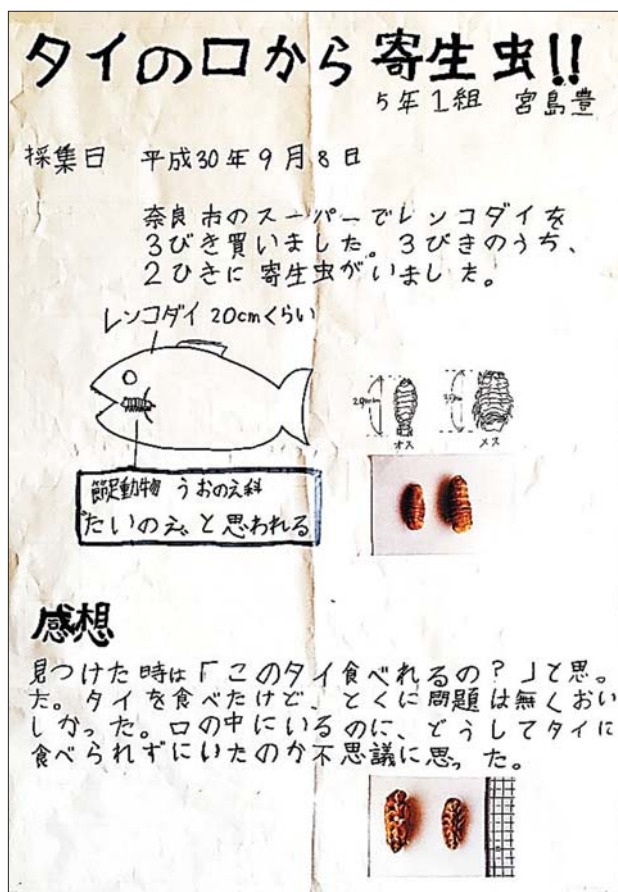 タイの口から寄生虫!!
5年1組 宮島豊
採集日 平成30年9月8日
奈良市のスーパーでレンコダイを
3びき買いました。3びきのうち、
2ひきに寄生虫がいました。
レンコダイ 20cmくらい
20mm
オス
メス
節足動物 うおのえ科
"たいのえ"と思われる
感想
見つけた時は「このタイ食べれるの?」と思っ
た。タイを食べたけど、とくに問題は無くおい
しかった。口の中にいるのに、どうしてタイに
食べられずにいたのか不思議に思った。